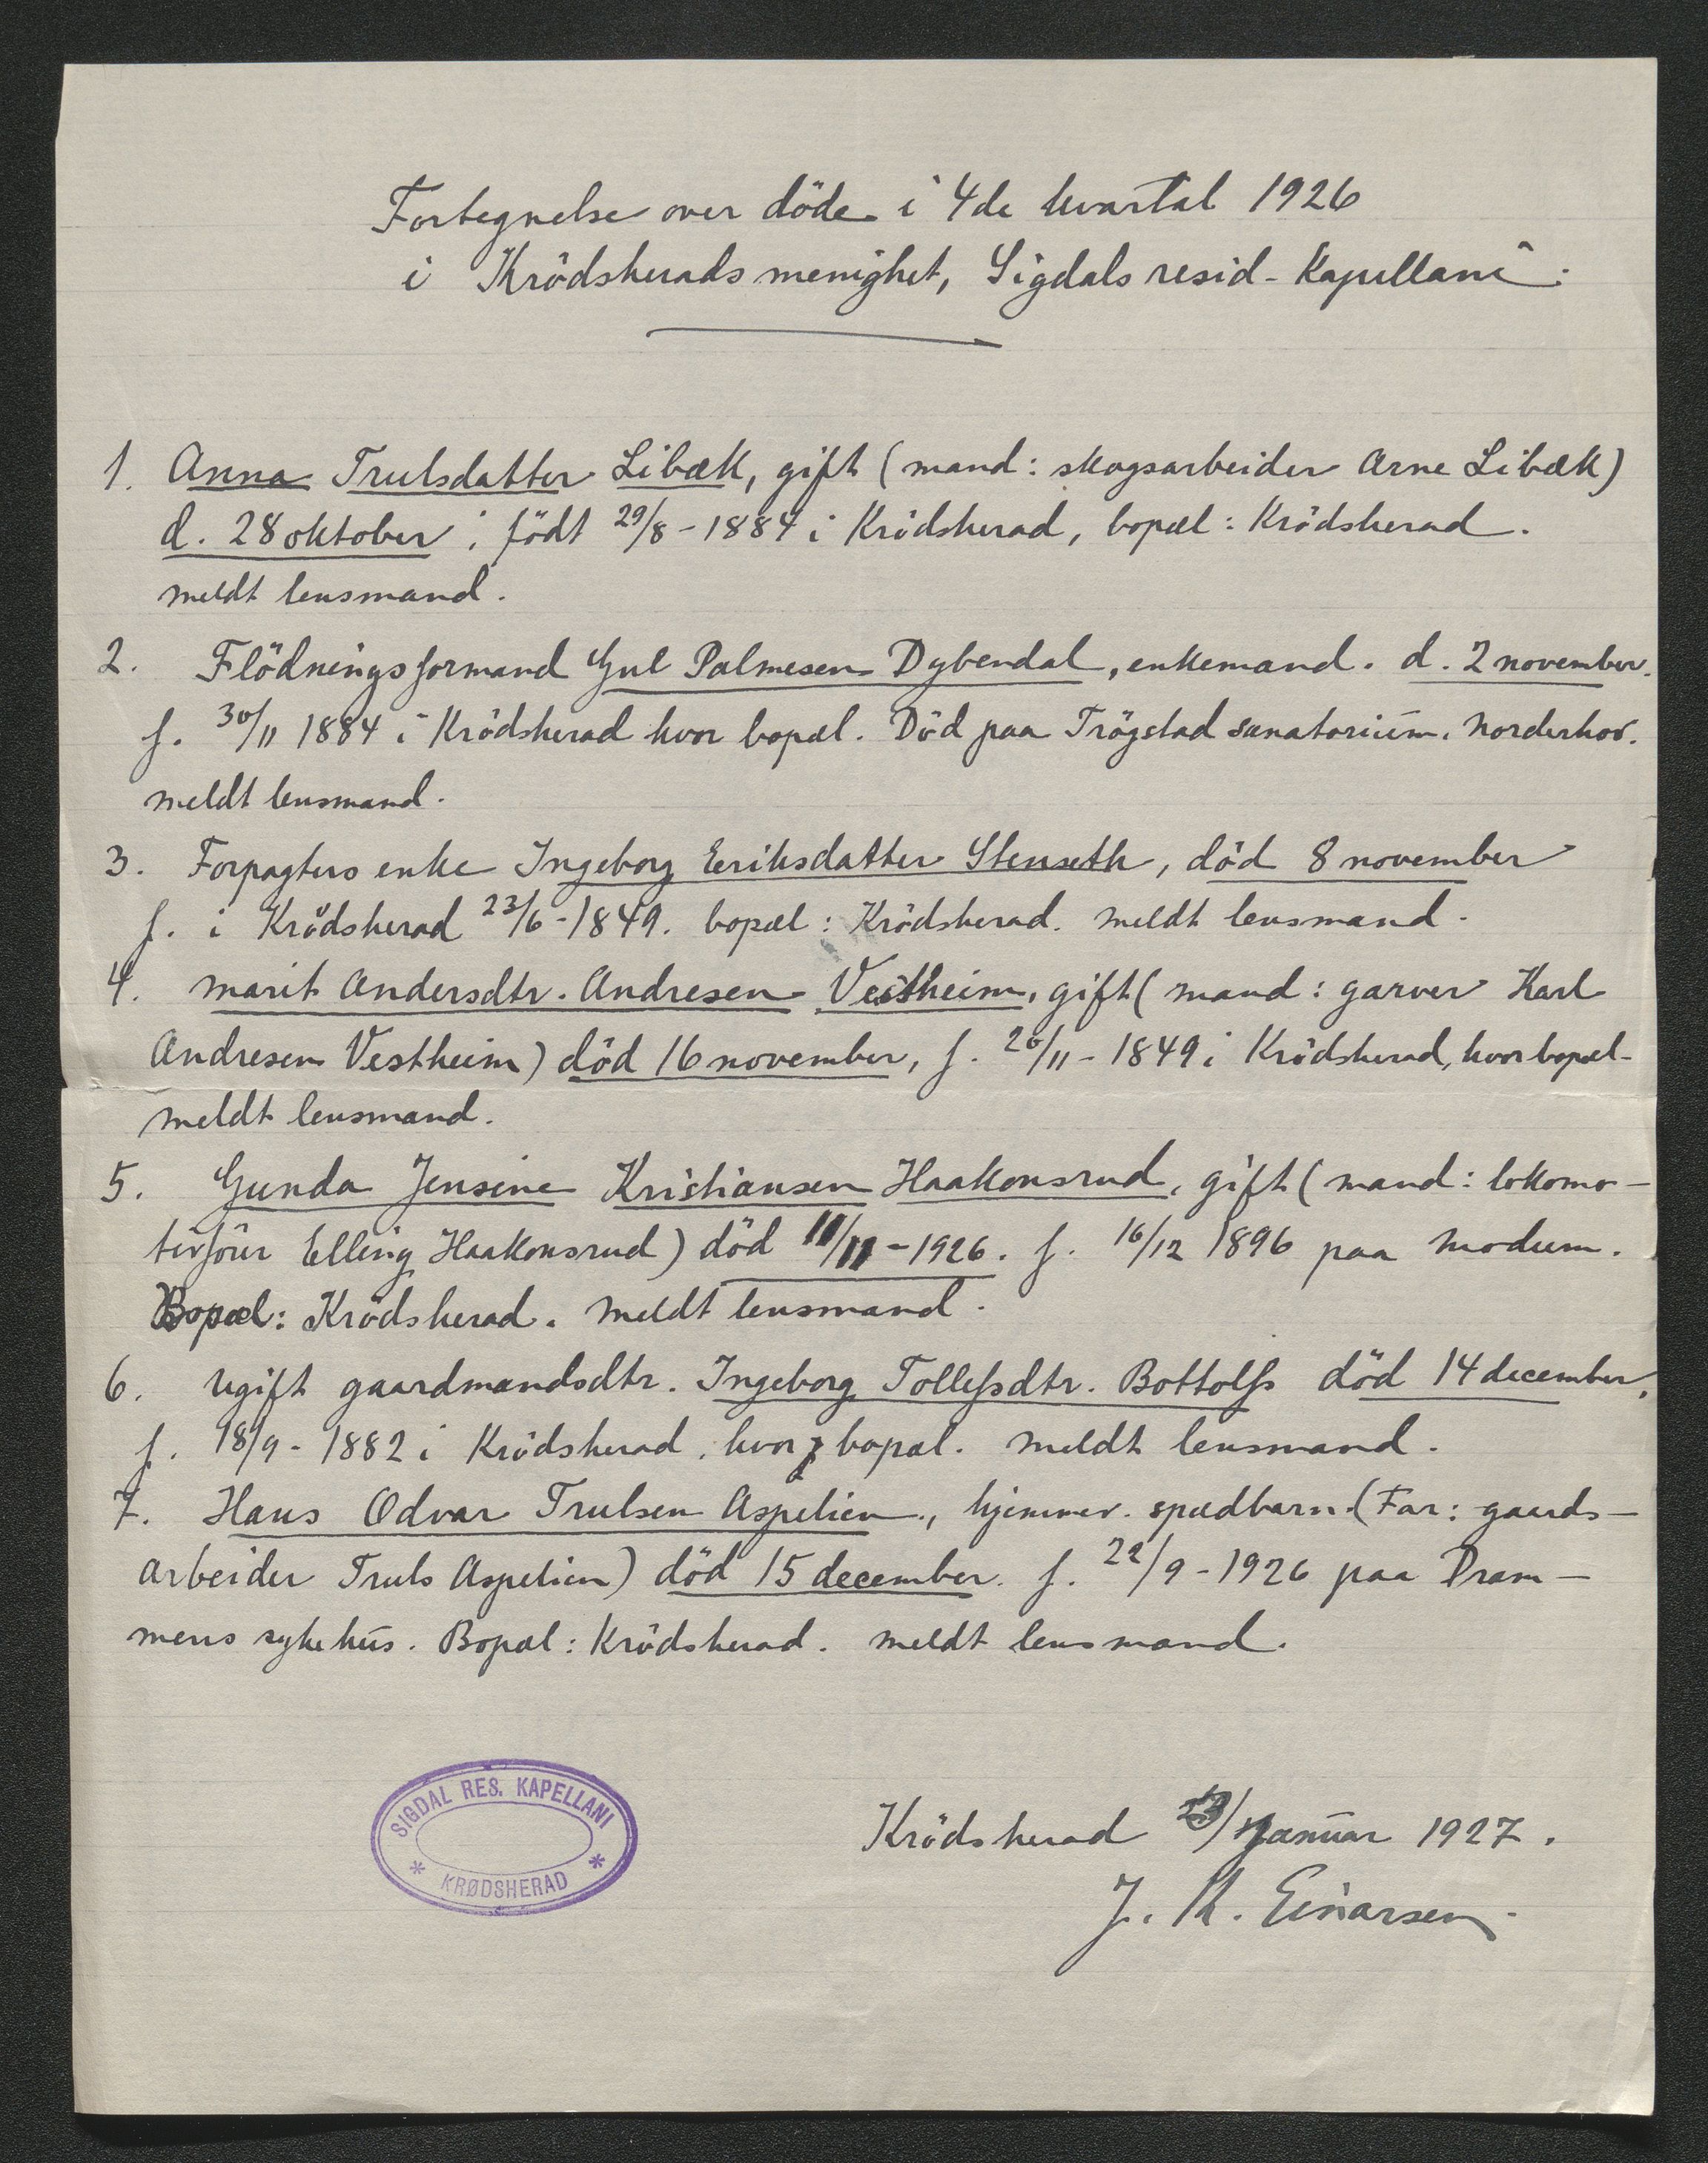 Fortegnelse over döde i 4de kvartal 1926
i Krödsherads menighet, Sigdals resid-Kapellani:
1. Anna Trulsdatter Libæk, gift (mand: skogsarbeider Arne Libæk)
d. 28 oktober; födt 29/8-1884 i Krödsherad, bopæl: Krödsherad.
meldt lensmand.
2. Flödningsformand Gul Palmesen Dybendal, enkemand. d. 2 november.
f. 30/11 1884 i Krödsherad hvor bopæl. Död paa Trögstad sanatorium, Norderhov.
meldt lensmand.
3. Forpagters enke Ingeborg Eriksdatter Stenseth, död 8 november
f. i Krödsherad 23/6-1849. bopæl: Krödsherad. meldt lensmand.
4. Marit Andersdtr. Andresen Vestheim, gift (mand: garver Karl
Andresen Vestheim) död 16 november, f. 26/11-1849 i Krödsherad, hvor bopæl-
meldt lensmand.
5. Gunda Jensine Kristiansen Haakonsrud, gift (mand: lokomo-
tivförer Elling Haakonsrud) död 11/11-1926. f. 16/12 1896 paa Modum.
Bopæl: Krödsherad. Meldt lensmand.
6. Ugift gaardmandsdtr. Ingeborg Tollefsdtr. Bottolfs död 14 december,
f. 18/9-1882 i Krödsherad, hvor bopæl. Meldt lensmand.
7. Hans Odvar Trulsen Aspelien, hjemmev. spædbarn (Far: gaards-
arbeider Truls Aspelien) död 15 december. f. 22/9-1926 paa Dram-
mens sykehus. Bopæl: Krödsherad. meldt lensmand.
SIGDAL RES. KAPELLANI
* KRØDSHERAD *
Krödsherad januar 1927.
J. K. Einarsen.